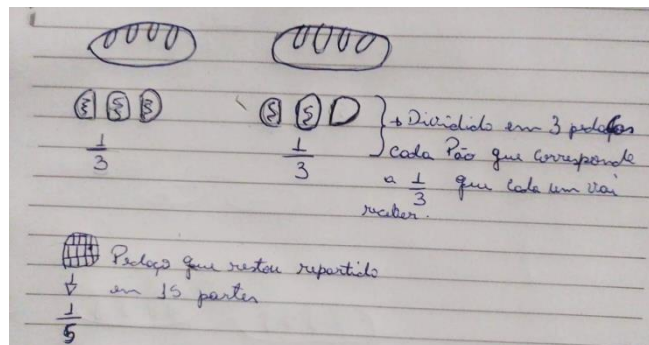 → Dividido em 3 pedaços
1/3 1/3 cada Pão que corresponde
a 1/3 que cada um vai
receber.
Pedaço que restou repartido
em 15 partes
1/5